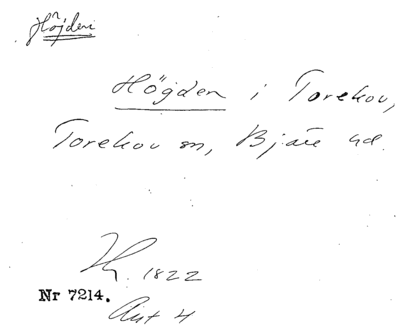 Höjden
Högden i Torekov,
Torekov sn, Bjäre hd.
1822
Nr 7214.